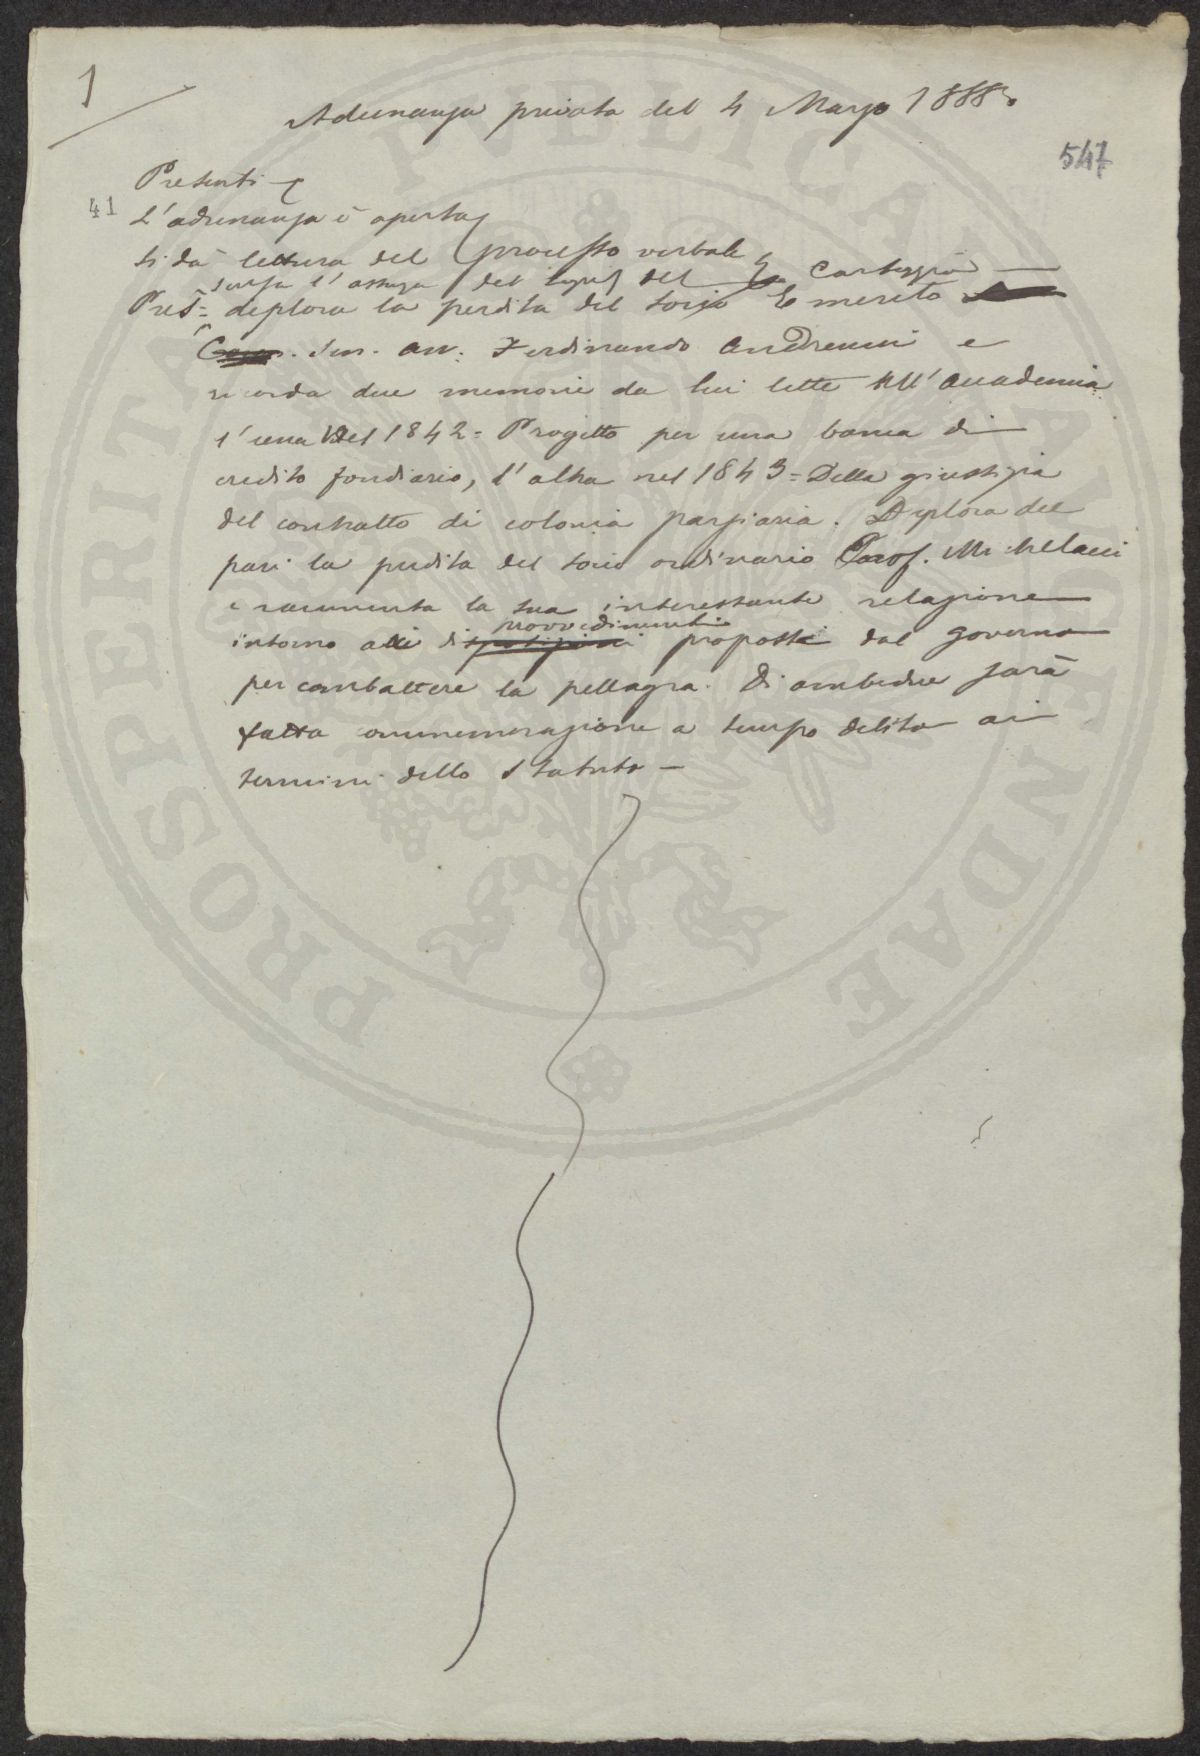 1
Adunanza privata del 4 Marzo 1888.
547
Presenti
41
L'adunanza è aperta
Si dà lettura del processo verbale
scusa l' del Carteggio
Pres. = deplora la perdita del socio Emerito
Sen. Avv. Ferdinando Andreucci e
ricorda due memorie da lui lette all'Accademia
l'una del 1842 = Progetto per una banca di
credito fondiario, l'altra nel 1843 = Della giustizia
del contratto di colonia parziaria. Deplora del
pari la perdita del socio ordinario Prof. Michelacci
e rammenta la sua interessante relazione
provvedimenti
intorno ai disposizioni proposti dal governo
per combattere la pellagra. Di ambedue sarà
fatta commemorazione a tempo debito ai
termini dello Statuto —
PROSPERITATI PUBLICAE AUGENDAE